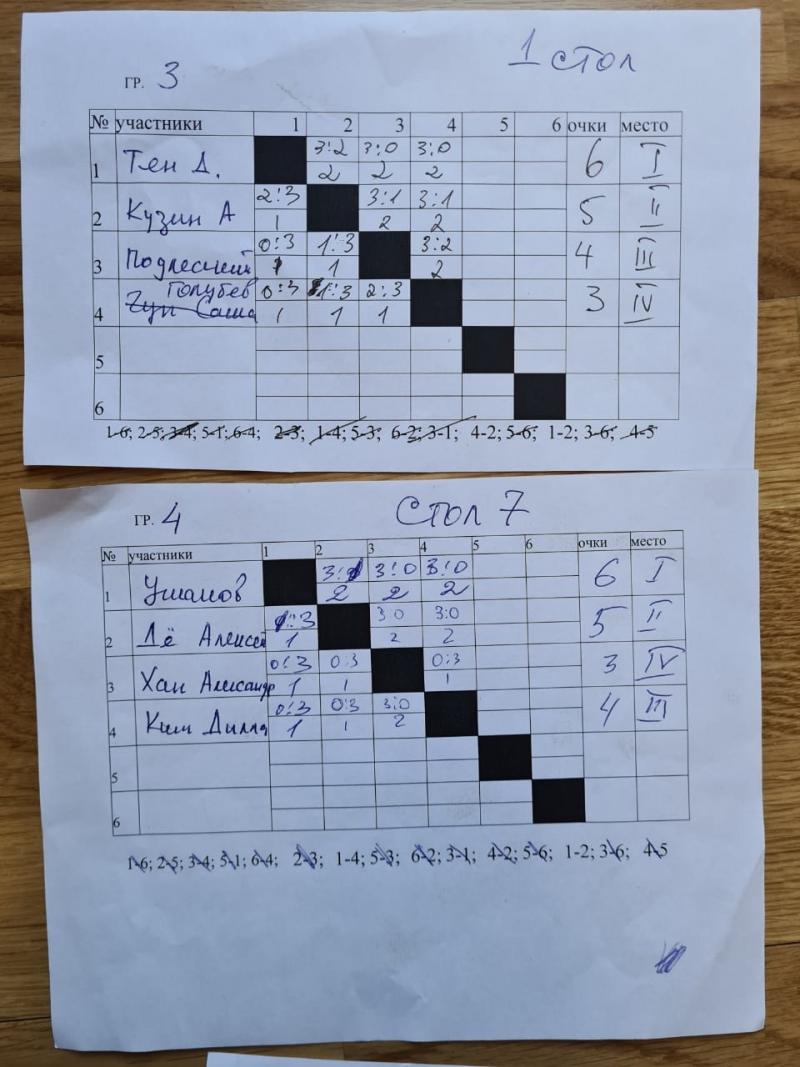 1 стол
ГР. 3
№ участники 1 2 3 4 5 6 очки место
1 Тен Д. 3:2 3:0 3:0 6 I
2 2 2
2 Кузин А 2:3 3:1 3:1 5 II
1 2 2
3 Подлесный 0:3 1:3 3:2 4 III
1 1 2
4 Голубев 0:3 1:3 2:3 3 IV
Саша 1 1 1
5
6
1-6; 2-5; 3-4; 5-1; 6-4; 2-3; 1-4; 5-3; 6-2; 3-1; 4-2; 5-6; 1-2; 3-6; 4-5
ГР. 4 СТОЛ 7
№ участники 1 2 3 4 5 6 очки место
1 Ушаков 3:0 3:0 6 I
2 2 2
2 Лё Алексей 3 0 3:0 5 II
1 2 2
3 Хан Александр 0:3 0:3 0:3 3 IV
1 1 1
4 Ким 0:3 0:3 3:0 4 III
1 1 2
5
6
1-6; 2-5; 3-4; 5-1; 6-4; 2-3; 1-4; 5-3; 6-2; 3-1; 4-2; 5-6; 1-2; 3-6; 4-5